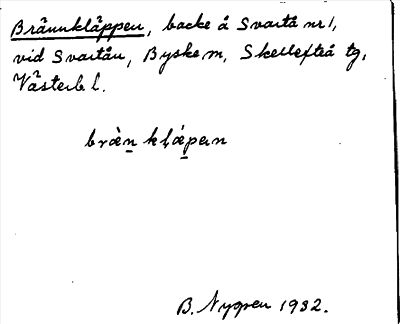 Brännkläppen, backe å Svartå nr 1,
vid Svartån, Byske sn, Skellefteå tg,
Västerb l.
bràn̲ klǽpan
B. Nygren 1932.